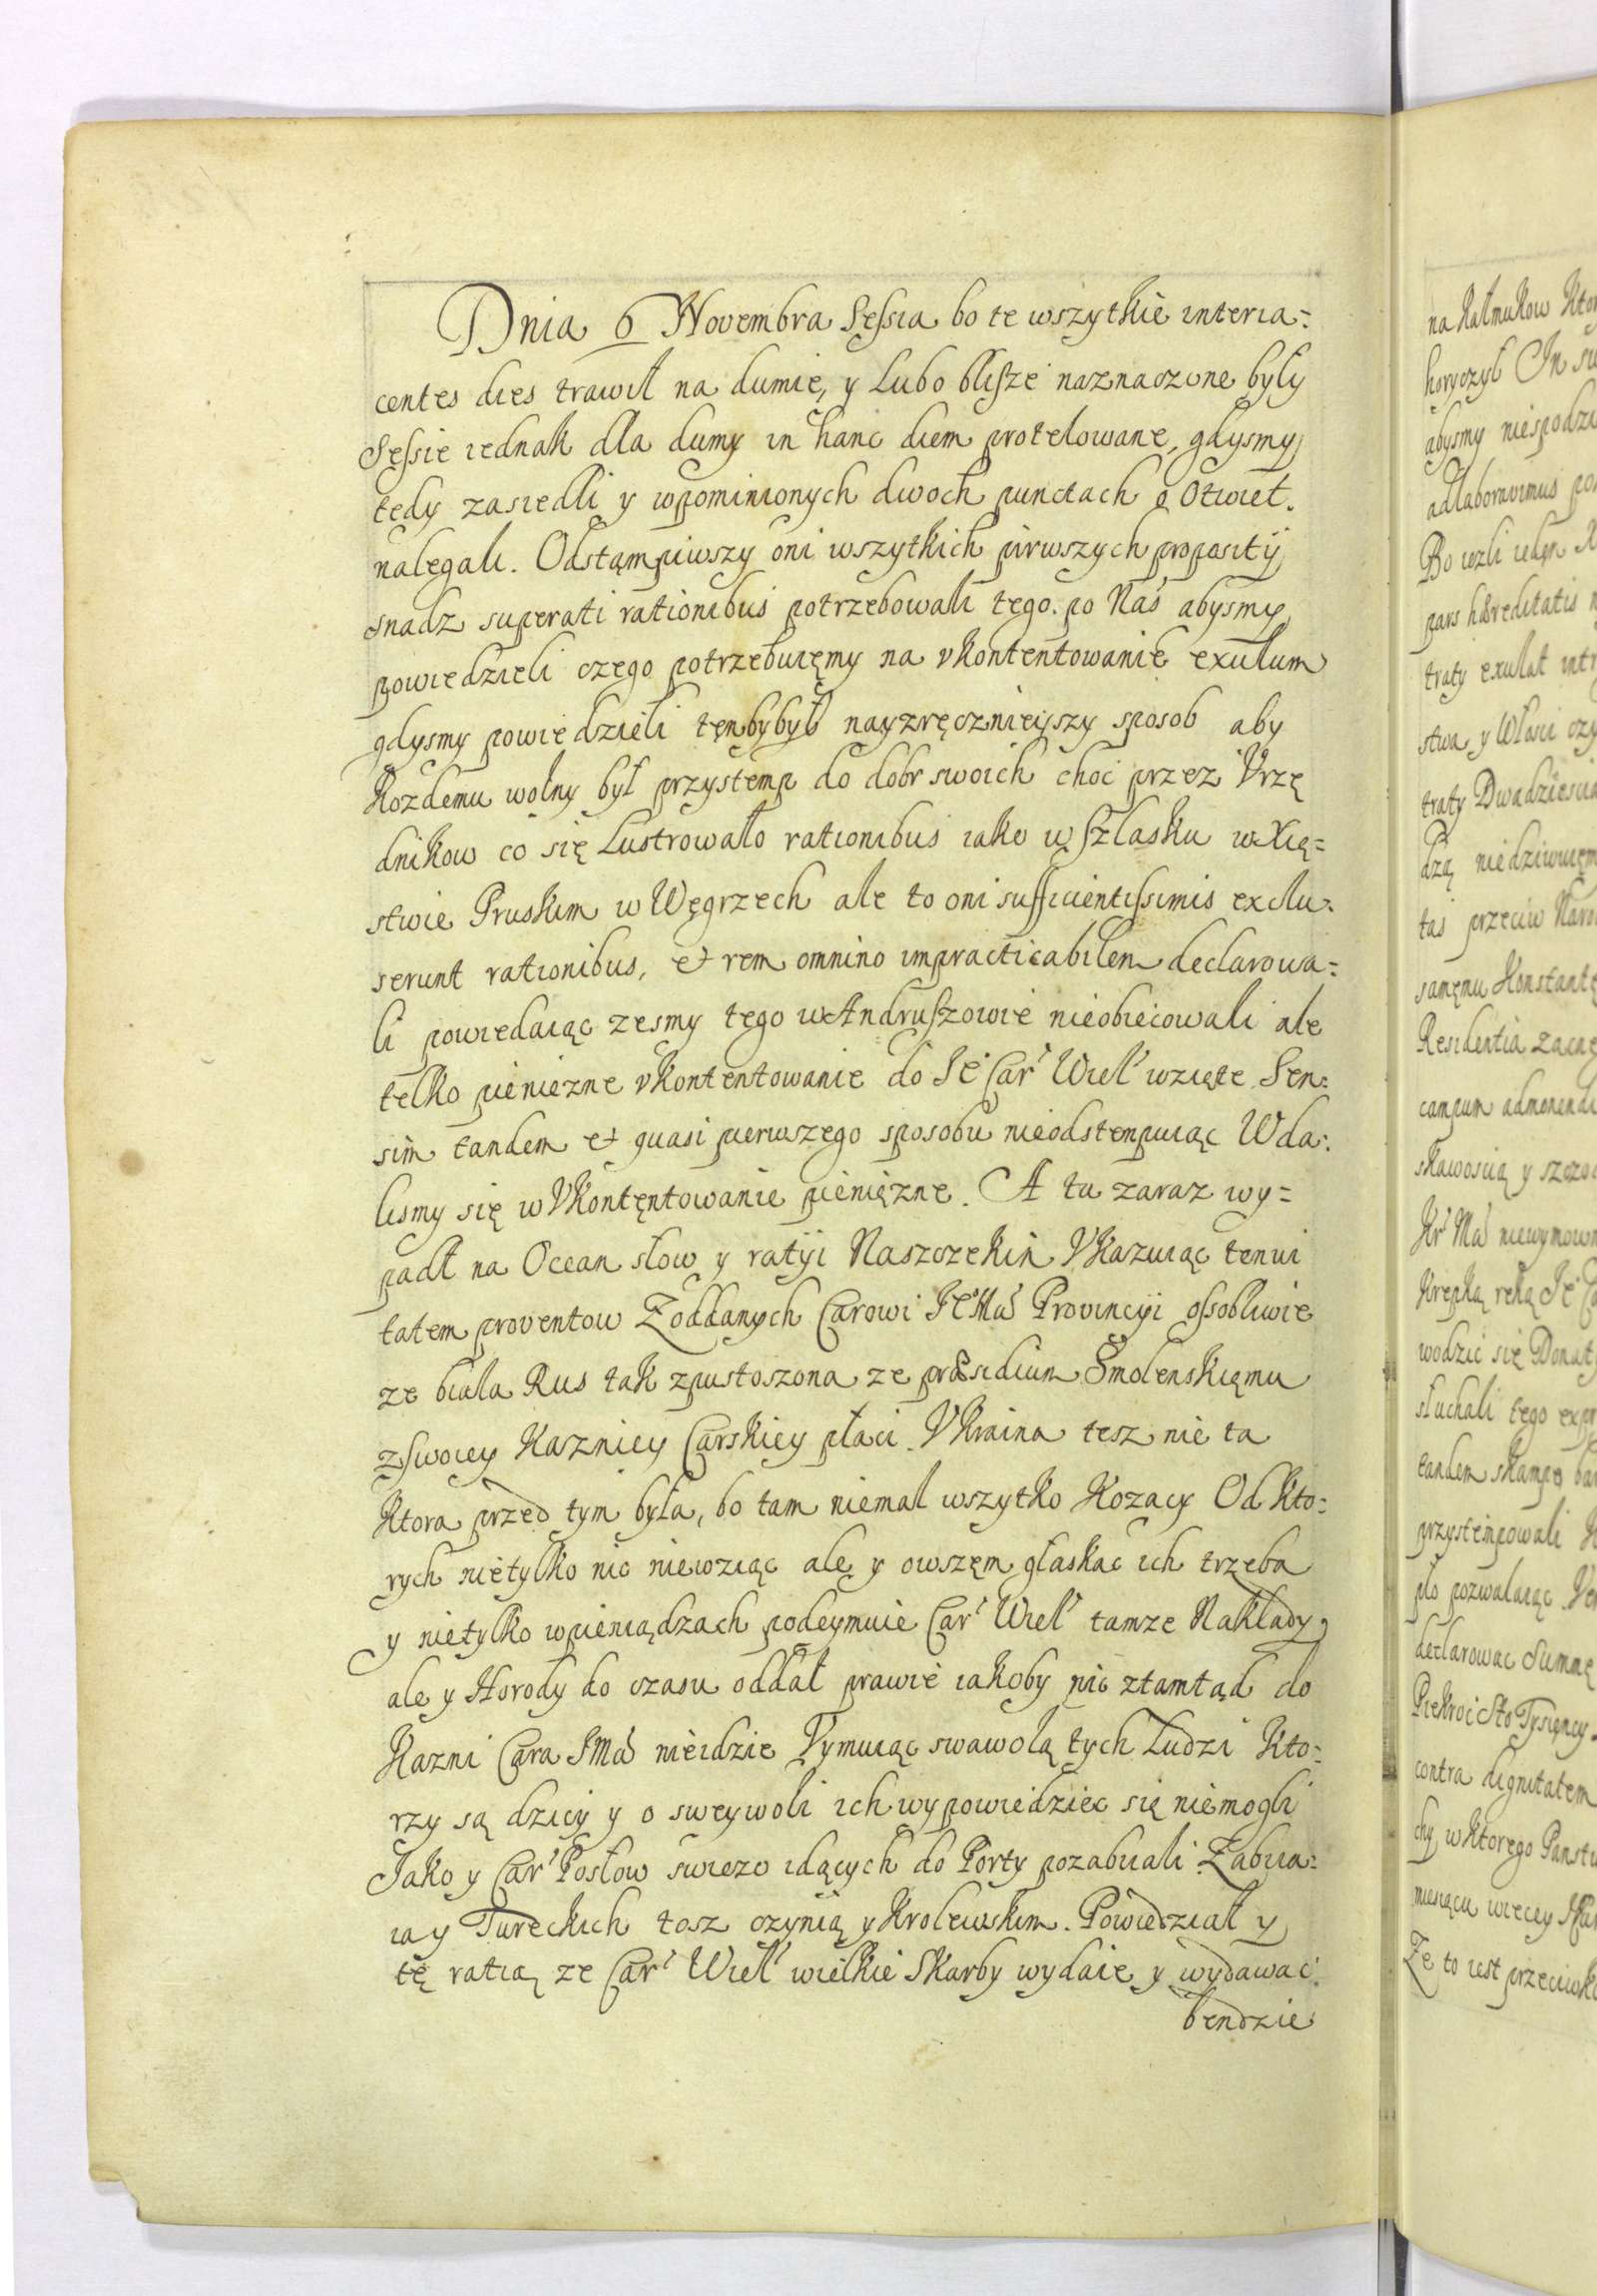 Dnia 6 Novembra Sessia bo te wszytkie interia=
centes dies trawił na dumie, y Lubo bliſze naznaczone były
Sessie iednak dla dumy in hanc diem protelowane, gdysmy
tedy zasiedli y wpominionych dwoch punctach o Otwiet.
nalegali. Odstąmpiwszy oni wszytkich pirwszych proposityi
snadz superati rationibus potrzebowali tego po Nas abysmy
powiedzieli czego potrzebuięmy na vkontentowanie exulum
gdysmy powiedzieli tęnbybył nayzręcznieyszy sposob aby
Kozdemu wolny był przystemp do dobr swoich choc przez Vrzę
dnikow co się Lustrowało rationibus iako w Szlasku w Xię=
stwie Pruskim w Węgrzech ale to oni sufficientissimis exclu=
serunt rationibus, et rem omnino impracticabilem declarowa=
li powiedaiąc zesmy tego w Andruszowie nieobiecowali ale
telko pieniezne vkontentowanie do Je Car Wiel wzięte Sen=
sim tandem et quasi pierwszego sposobu nieodstempuiąc Wda=
lismy się w Vkontęntowanie pieniężne. A tu zaraz wy=
padł na Ocean słow y ratyi Naszczekin Vkazuiąc tenui
tatem proventow Zoddanych Carowi JeMa Provincyi ossobliwie
ze biała Rus tak zpustoszona ze præsidium Smolenskięmu
zswoiey Kazniey Carskiey płaci. Vkraina tesz nie ta
Ktora przed tym była, bo tam niemal wszytko Kozacy Od Kto=
rych nietylko nic niewziąc ale y owszęm głaskac ich trzeba
y nietylko wpieniądzach podeymuie Car Wiel tamze Nakłady
ale y Horody do czasu oddał prawie iakoby nic ztamtąd do
Kazni Cara JMa nieidzie Vymuiąc swawolą tych Ludzi Kto=
rzy są dzicy y o sweywoli ich wypowiedziec się niemogli
Jako y Car Posłow swiezo idących do Porty pozabiiali Zabiia=
ia y Tureckich tosz czynią y Krolewskim. Powiedział y
tę ratią ze Car Wiel wielkie Skarby wydaie y wydawac
bendzie
na Kałmukow
abysmy
adlaboravimus
pars hæreditatis
traty exulat
stwa y Włosci
traty
dzą
tas przeciw
samęmu
Residentia
campum
skawoscią y
niewymown
Krepką reką Je
wodzic się
słuchali tego
tandem
przystempowali
pozwalaiąc
declarowac Summę
Piekroć Sto Tysięcy
contra dignitatem
w Ktorego
miesiącu wiecey
Ze to iest